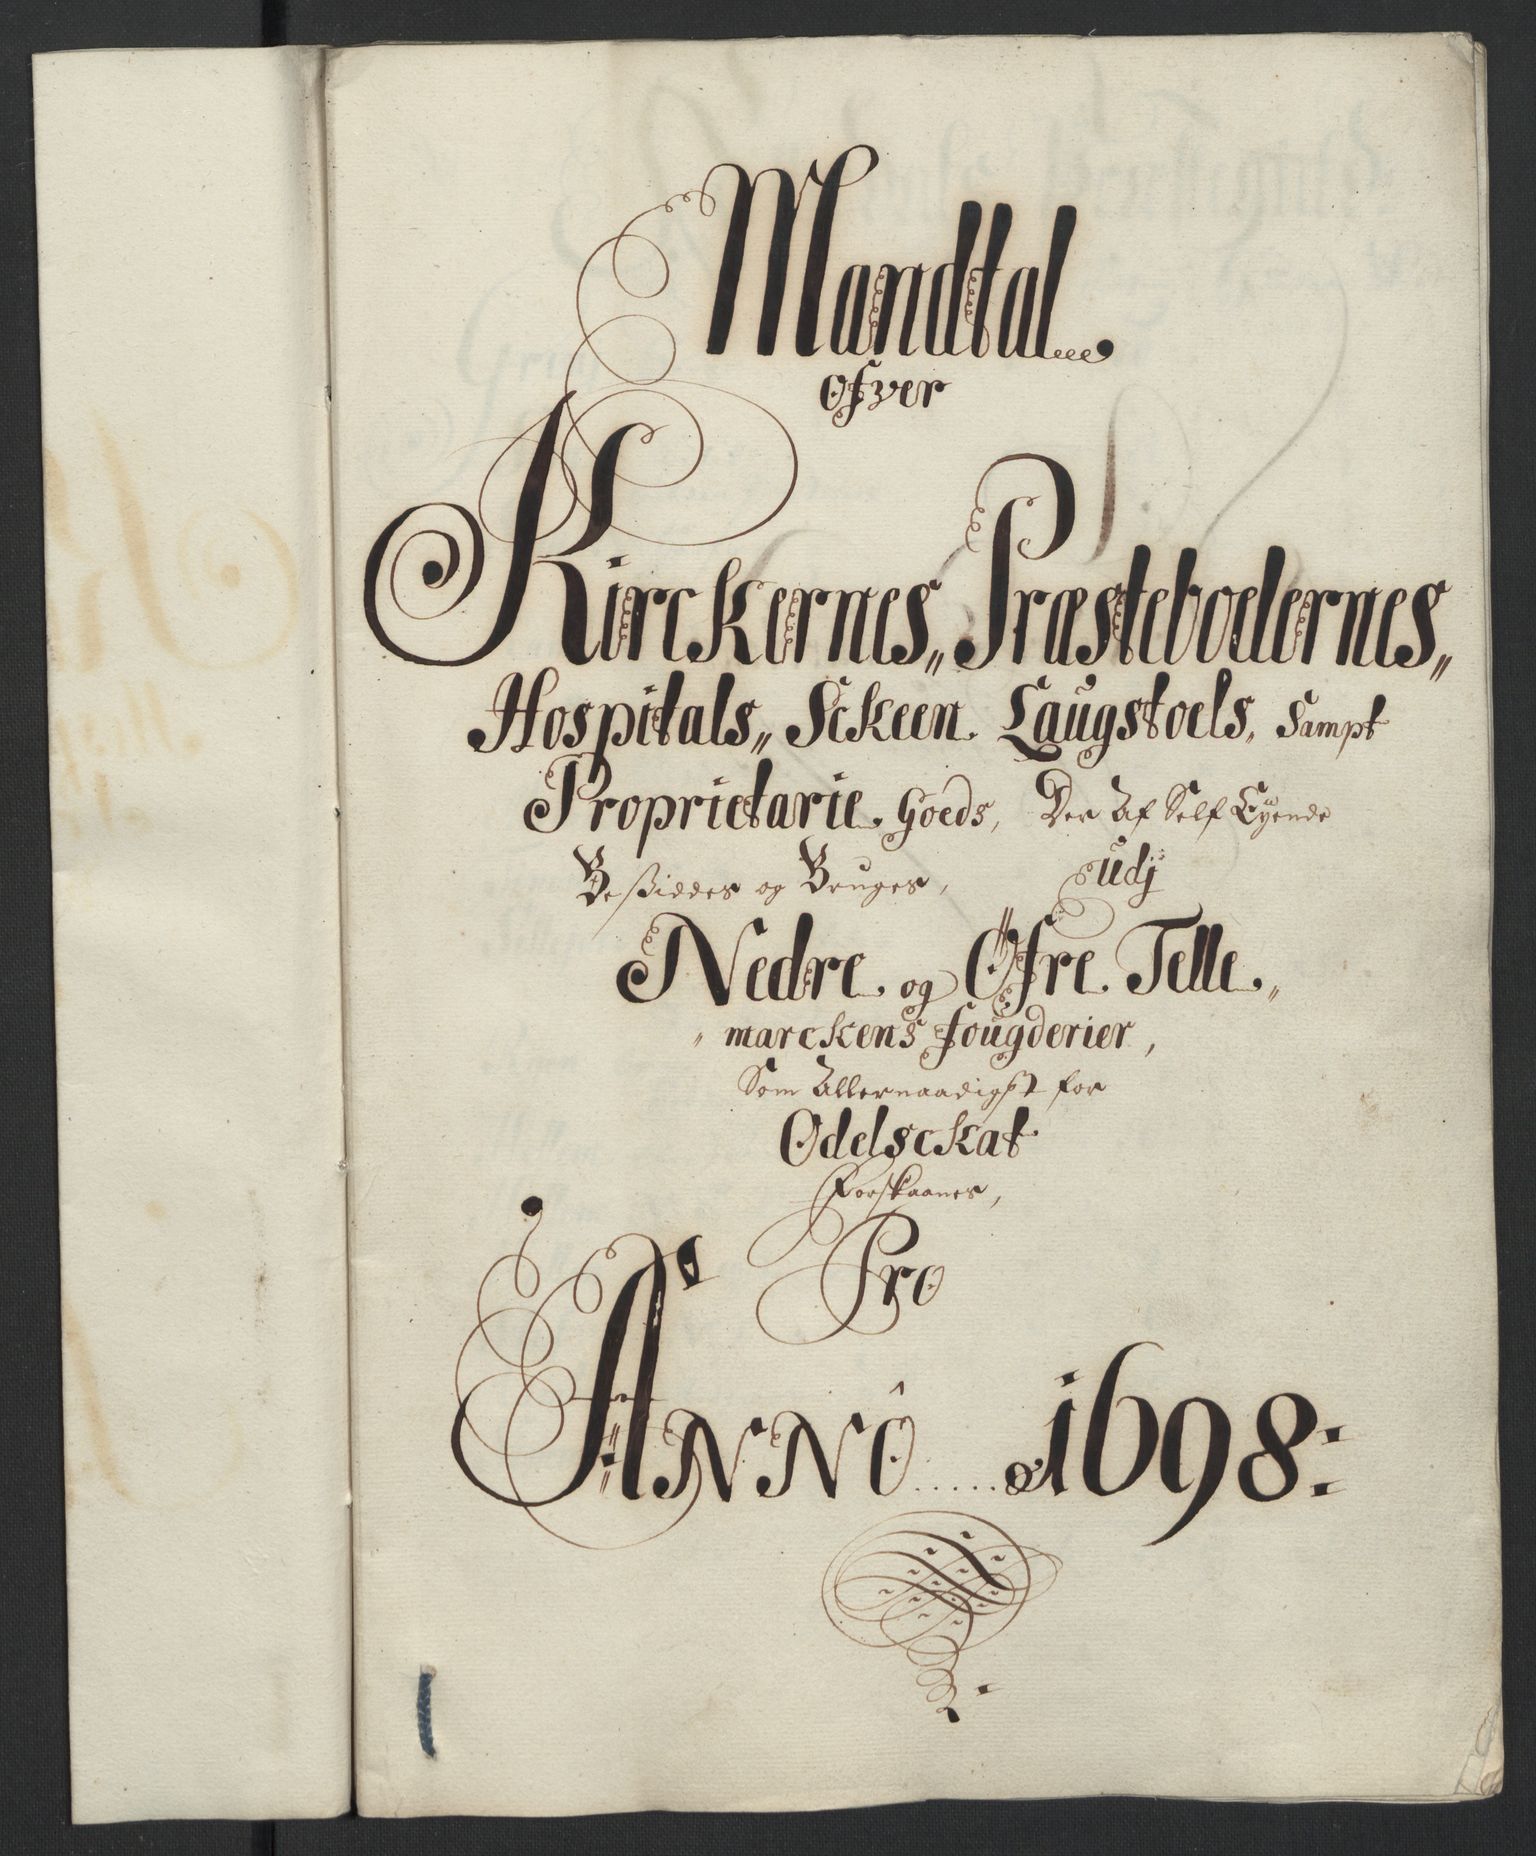 Mandtal
Ofver
Kirckernes„ Præstebolernes„
Hospitals„ Sckeen. Laugstoels, Sampt
Proprietarie Goeds, Der Af Self Eyende
Beßiddes og Bruges, udj
Nedre og Öfre Telle„
„marckens fougderier,
Som Allernaadigst for
Odelsckat
Forskaanes,
Pro
Annô ..... 1698: